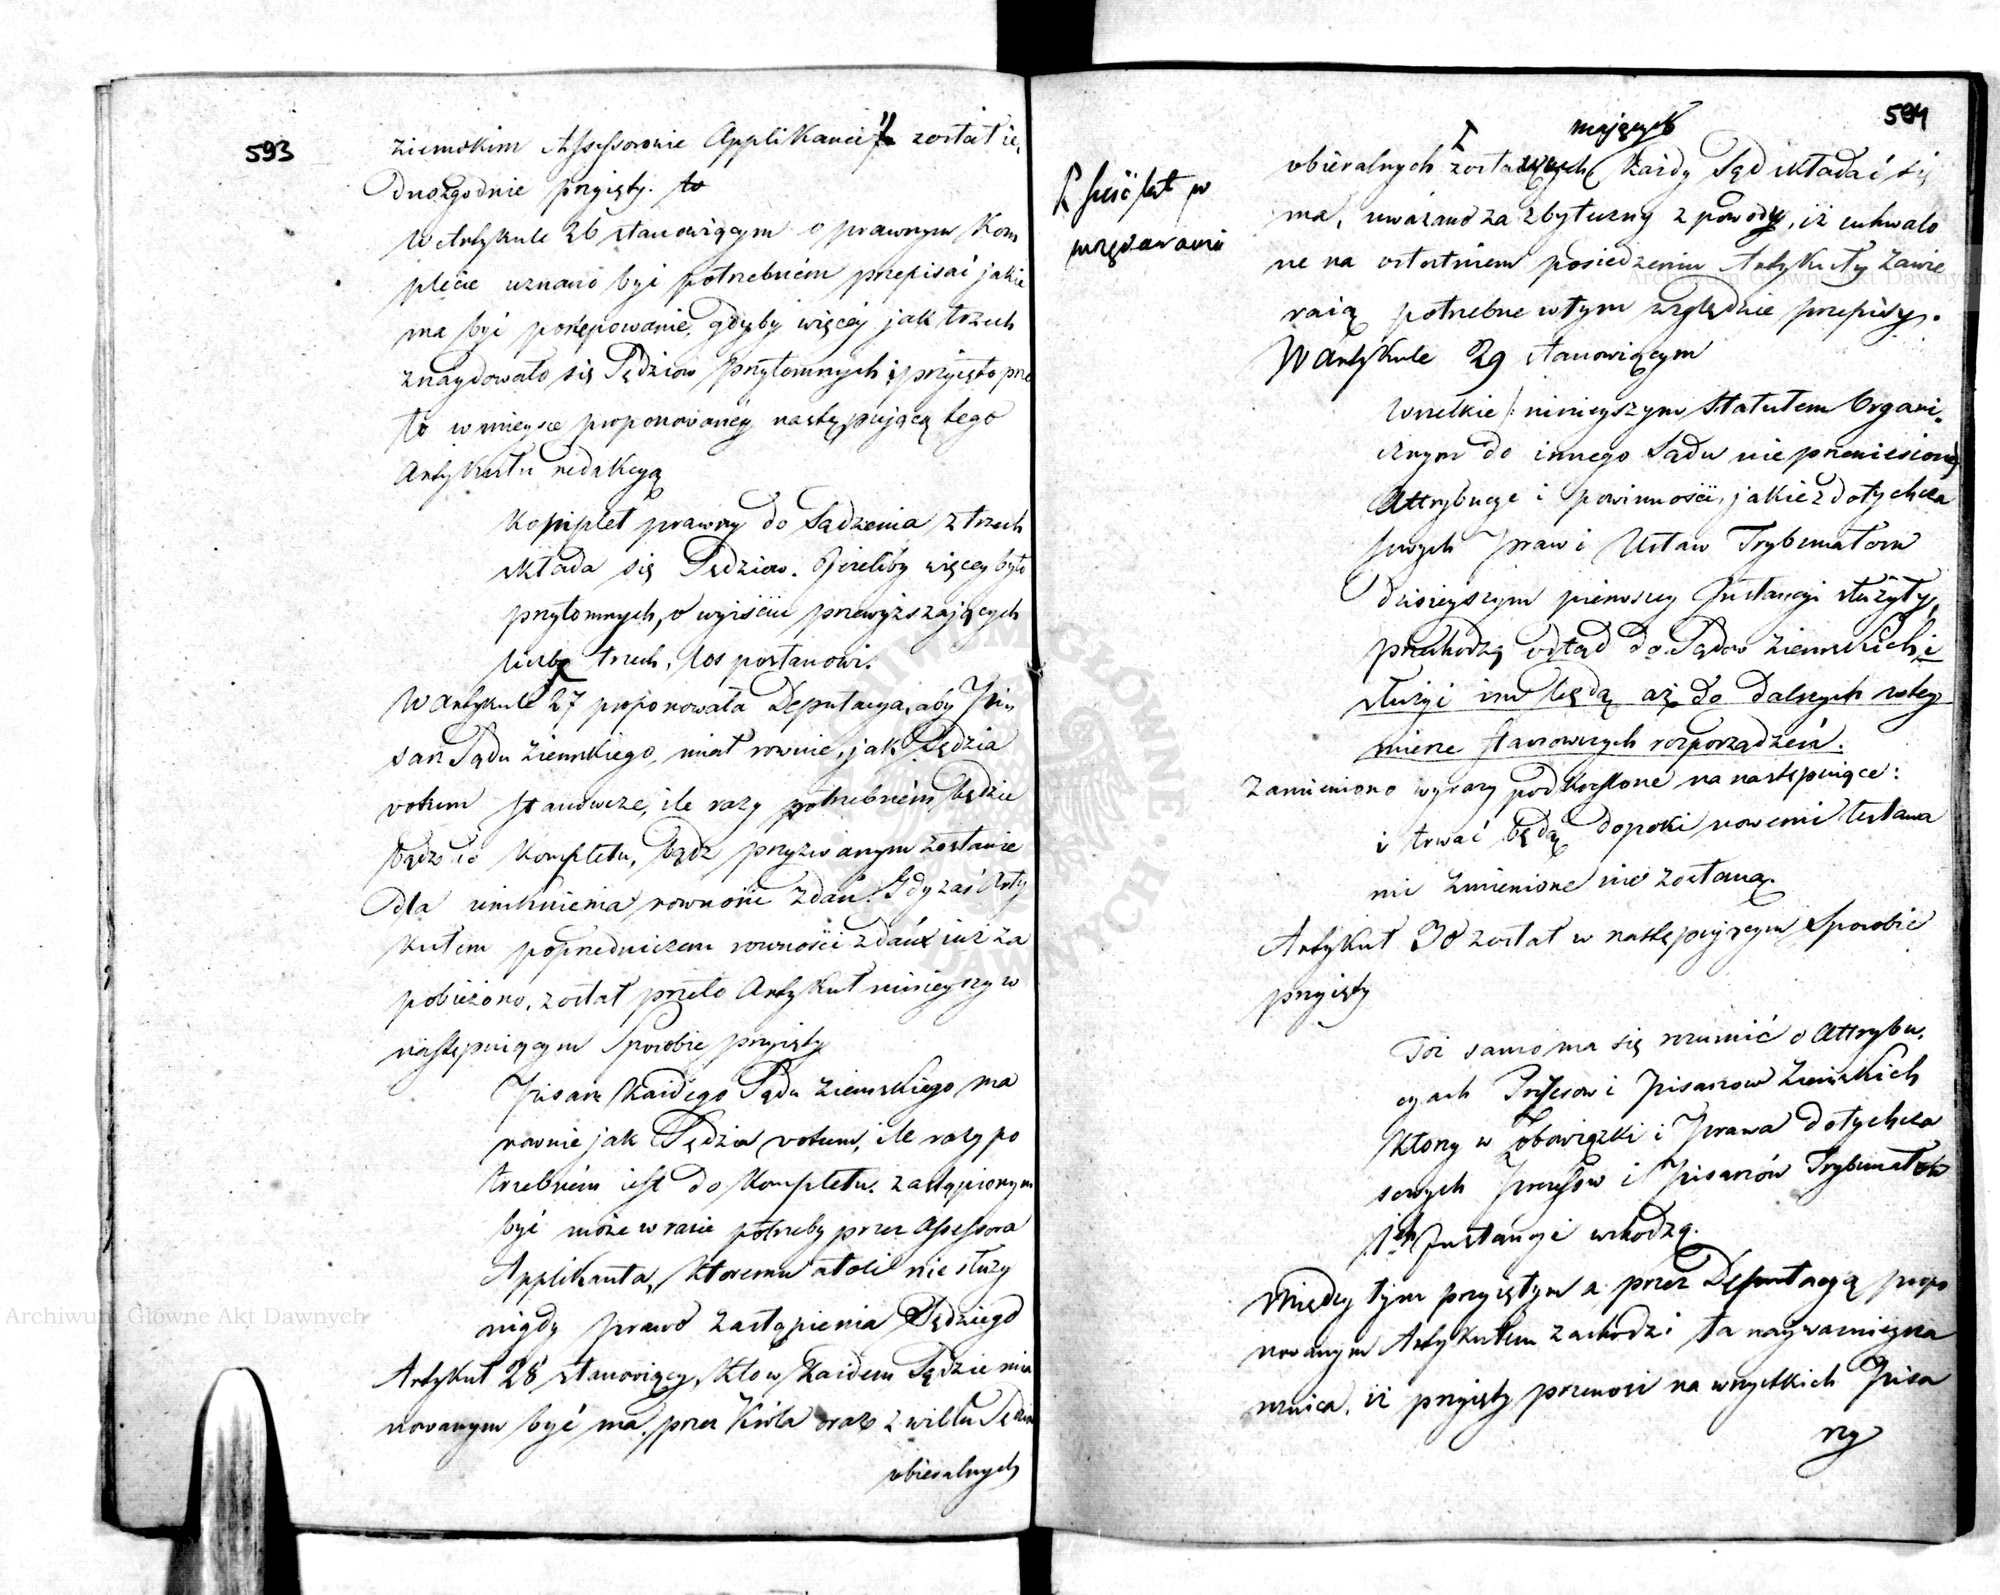 593
ziemskim Assessorowie Applikanci" został ie
dnozgodnie przyięty.
W Artykule 26 stanowiącym o prawnym Kom
plecie uznano być potrzebném przepisać jakie
ma być postępowanie, gdyby więcéj jak trzech
znaydowało się Sędziow przytomnych i przyięto prze
to w mieysce proponowanéy następującą tego
Artykułu redakcyą
Komplet prawny do Sądzenia z trzech
składa się Sędziow. Jeżeliby więcey było
przytomnych, o wyiściu przewyższaiących
liczbę trzech, los postanowi.
W Artykule 27 proponowała Deputacya, aby Pi
sarz Sądu Ziemskiego, miał rownie, jak Sędzia
votum stanowcze, ile razy potrzebném będzie
bądź do Kompletu, bądź przyzwanym zostanie
dla uniknienia rownośći zdań. Gdy zaś Arty
kułem poprzedniczem rownośći zdań już za
pobieżono, został przeto Artykuł ninieyszy w
następuiącym Sposobie przyięty
Pisarz Każdego Sądu Ziemskiego ma
rownie jak Sędzia votum, ile razy po
trzebném iest do Kompletu. zastąpionym
być może w razie potrzeby przez Assessora
Applikanta, Ktoremu atoli nie służy
nigdy prawo zastąpienia Sędziego
Artykuł 28 stanowiący, Kto w Każdem Sądzie mia
nowanym być ma, przez Króla oraz z wielu Sędziow
obieralnych
594
mających
obieralnych Każdy Sąd składać się
ma, uważano za zbyteczny z powodu, iż uchwalo
ne na ostatniem posiedzeniu Artykuły zawie
raią potrzebne w tym względzie przepisy.
W Artykule 29 stanowiącym
Wszelkie /: ninieyszym Statutem Organi
cznym do innego Sądu nieprzeniesione
Attrybucye i powinnośći, jakie z dotychcza
sowych Praw i Ustaw Trybunałom
dzisieyszym pierwszey Instancyi służyły,
przechodzą odtąd do Sądow Ziemskich i
służyć im będą aż do dalszych w tey
mierze stanowczych rozporządzeń.
Zamieniono wyrazy podkreślone na następuiące:
i trwać będą dopoki nowemi Ustawa
mi zmienione nie zostaną.
Artykuł 30 został w następuiącym Sposobie
przyięty
Toż samo ma się rozumić o Attrybu
cyach Prezesow i Pisarzow Ziemskich
Ktorzy w obowiązki i Prawa dotychcza
sowych Prezesow i Pisarzów Trybunałow
1ey Instancyi wchodzą.
Między tym przyiętym a przez Deputacyą propo
nowanym Artykułem zachodzi ta nayważnieysza
rożnica, iż przyięty przenosi na wszystkich Pisa
rzy